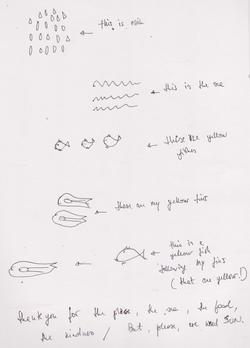 this is rain
this is the sea
these are yellow
fishes
these are my yellow fins
this is a
yellow fish
following my fins
(that are yellow!)
thank you for the place, the sea, the food,
the kindness / But, please, we need SUN.